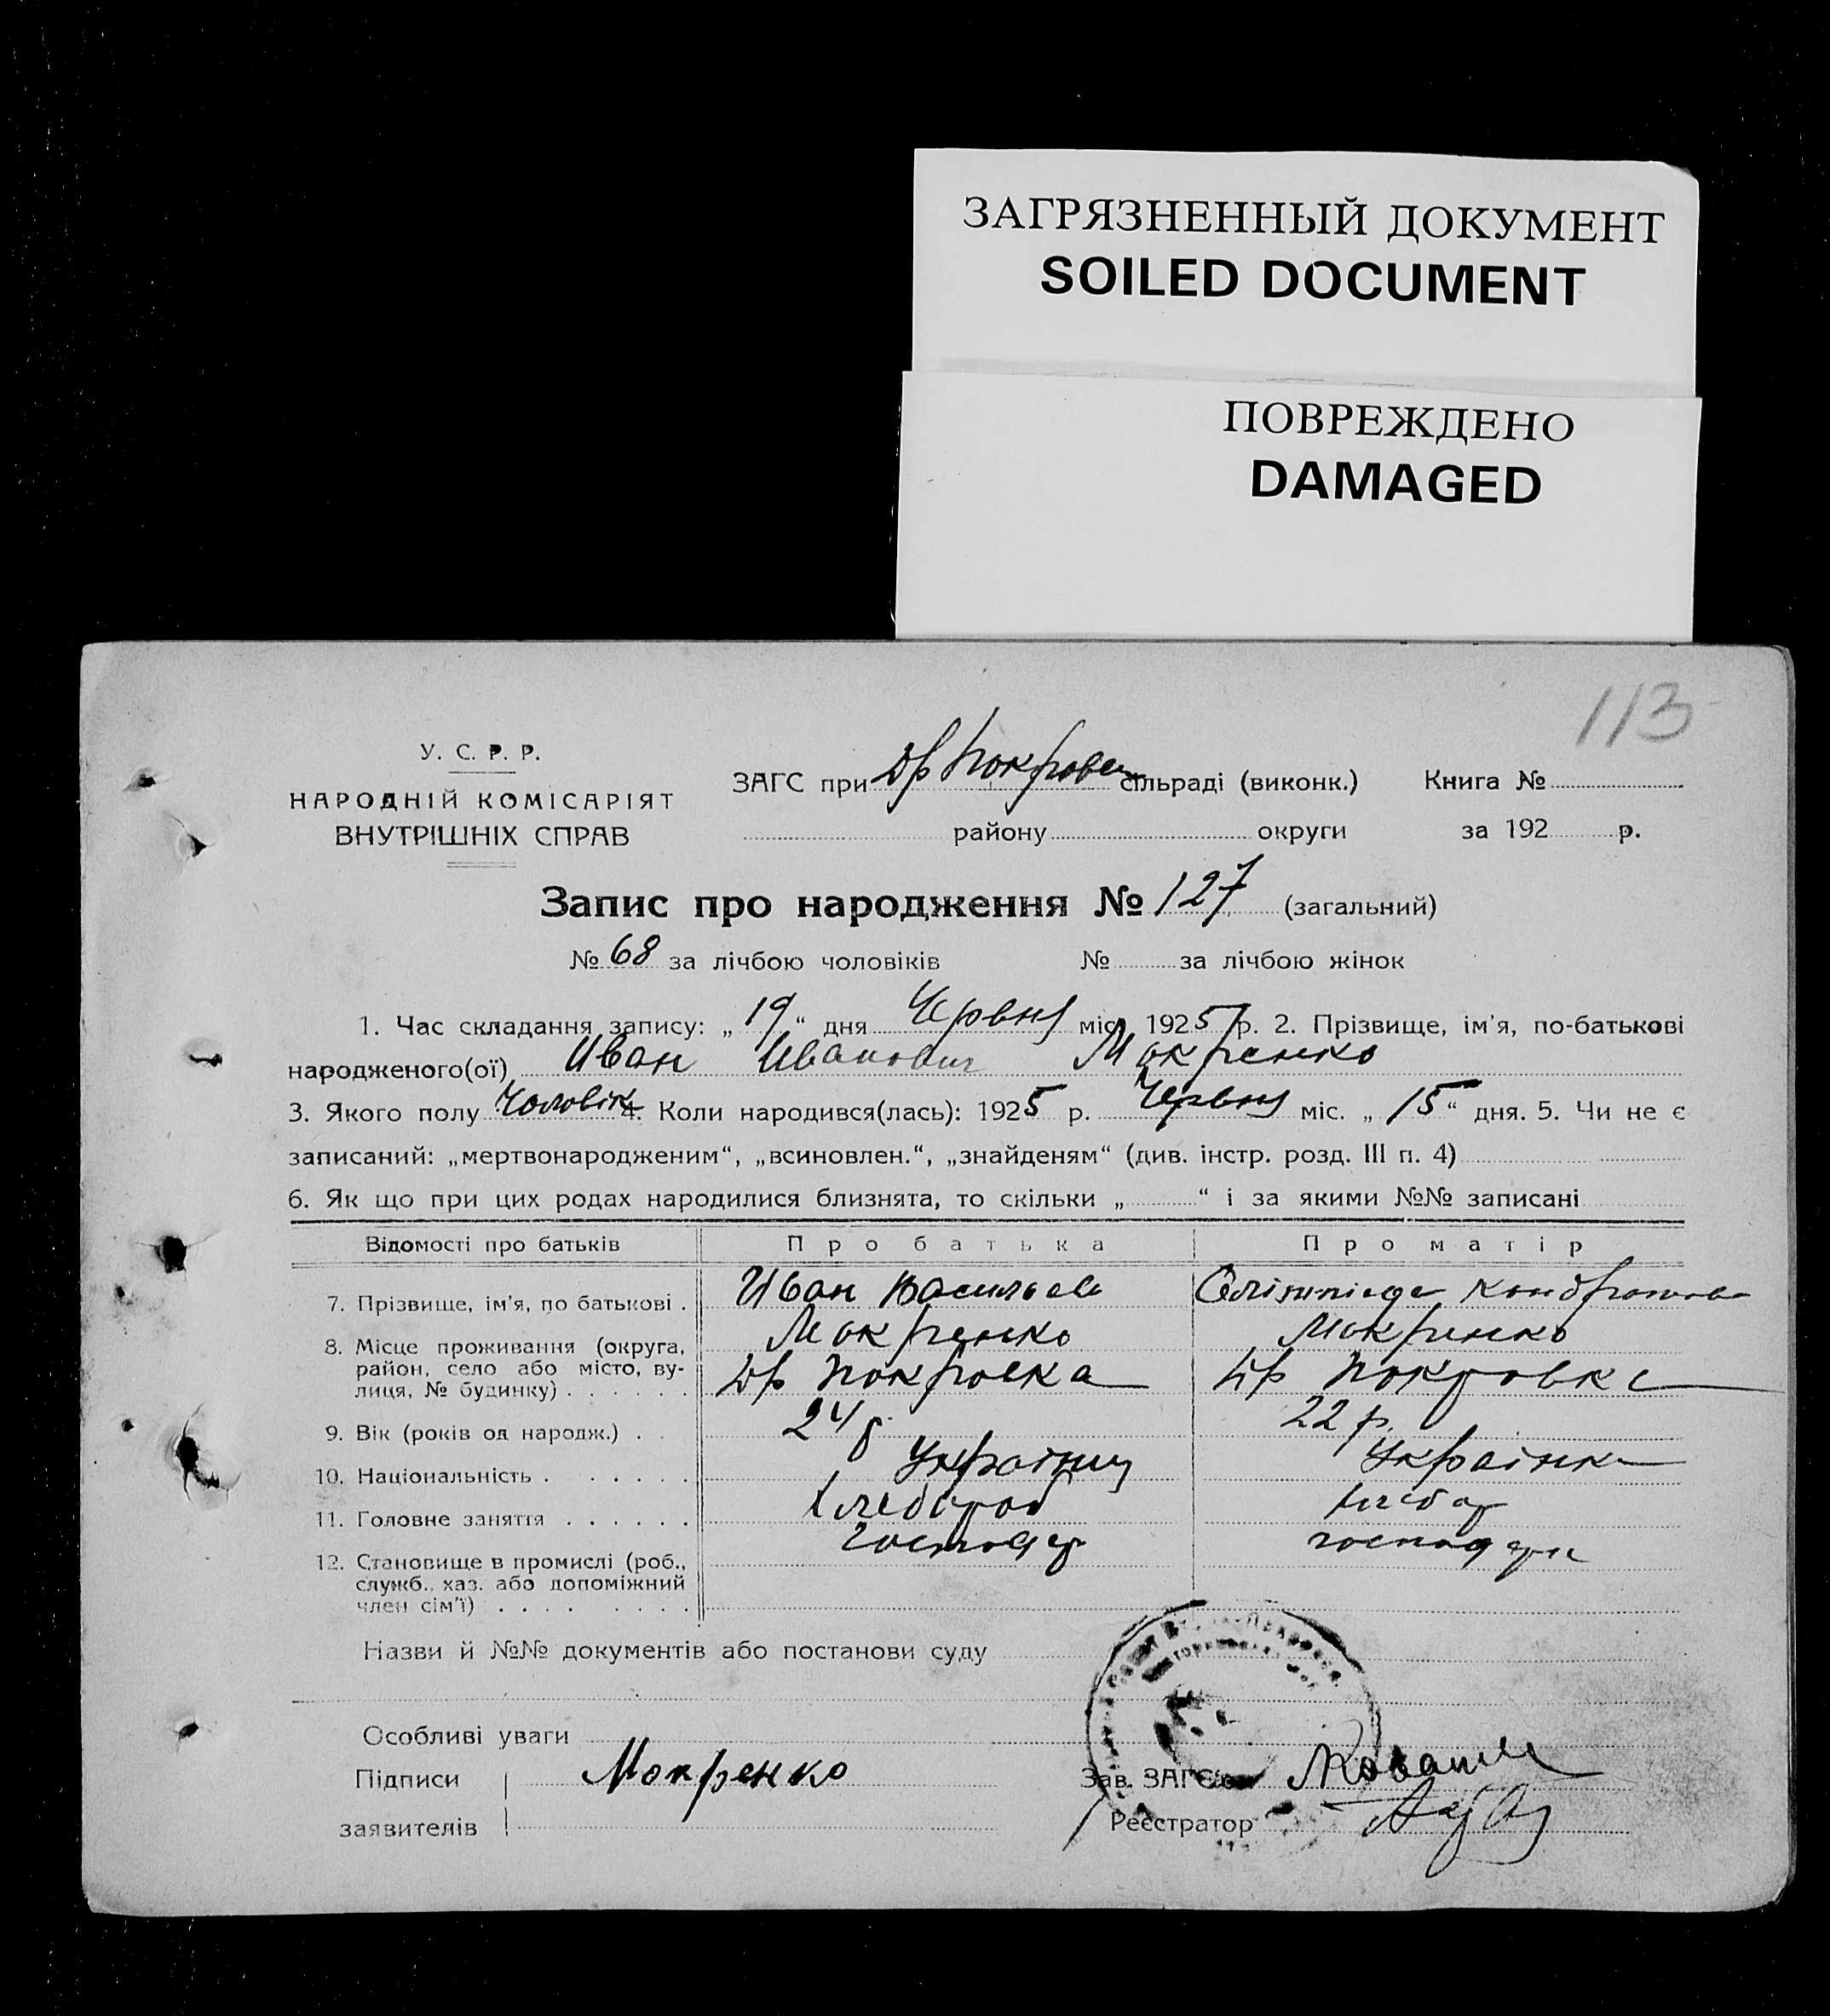 ЗАГРЯЗНЕННЫЙ ДОКУМЕНТ
SOILED DOCUMENT
ПОВРЕЖДЕНО
DAMAGED
113
У. С. Р. Р.
НАРОДНІЙ КОМІСАРІЯТ
ВНУТРІШНІХ СПРАВ
ЗАГС при Др Покровск сільраді (виконк.) Книга №
району округи за 192 р.
Запис про народження № 127 (загальний)
№ 68 за лічбою чоловіків № за лічбою жінок
1. Час складання запису: „19“ дня Червня міс. 1925 р. 2. Прізвище, ім'я, по-батькові
народженого(ої) Иван Иванович Мокренко
3. Якого полу Чоловік 4. Коли народився(лась): 1925 р. Червня міс. „15“ дня. 5. Чи не є
записаний: „мертвонародженим“, „всиновлен.“, „знайденям“ (див. інстр. розд. III п. 4)
6. Як що при цих родах народилися близнята, то скільки „ “ і за якими №№ записані
Відомості про батьків Про батька Про матір
7. Прізвище, ім'я, по батькові . Иван Васильев Мокренко Олімпіяда Кондратова Мокренко
8. Місце проживання (округа,
район, село або місто, ву-
лиця, № будинку) . . . . . . Др Покровка Др Покровка
9. Вік (років од народж.) . . 24 р 22 р.
10. Національність . . . . . . Українец Українка
11. Головне заняття . . . . . . Хлебороб хлебор
господар господарк
12. Становище в промислі (роб.,
служб., хаз. або допоміжний
член сім'ї) . . . . . . . .
Назви й №№ документів або постанови суду
Особливі уваги
Підписи Мокренко Зав. ЗАГС'ом
заявителів Реєстратор